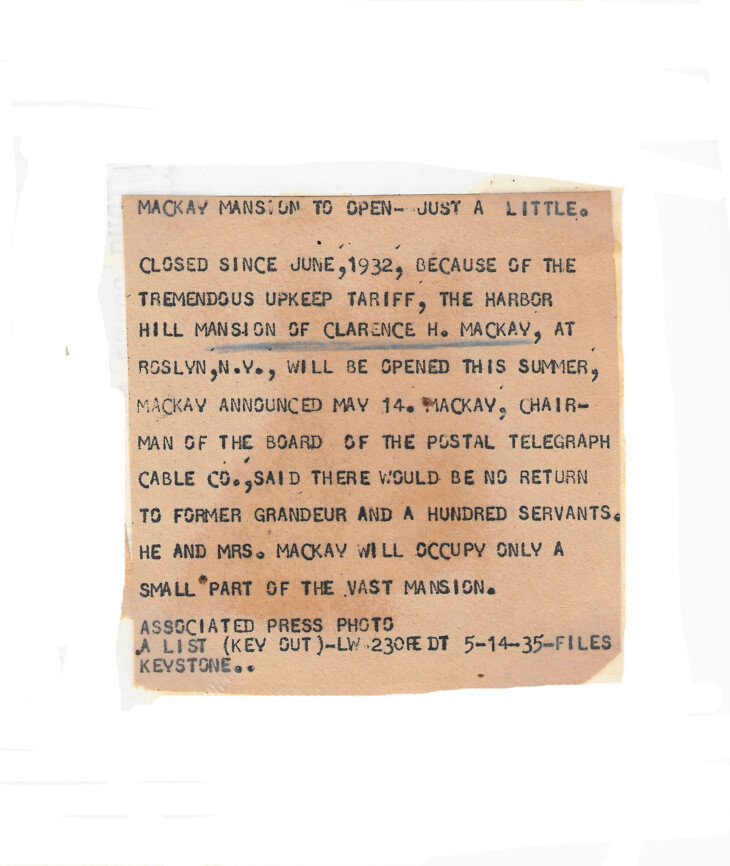 MACKAY MANSION TO OPEN- JUST A LITTLE.
CLOSED SINCE JUNE,1932, BECAUSE OF THE
TREMENDOUS UPKEEP TARIFF, THE HARBOR
HILL MANSION OF CLARENCE H. MACKAY, AT
ROSLYN,N.Y., WILL BE OPENED THIS SUMMER,
MACKAY ANNOUNCED MAY 14. MACKAY, CHAIR-
MAN OF THE BOARD OF THE POSTAL TELEGRAPH
CABLE CO.,SAID THERE WOULD BE NO RETURN
TO FORMER GRANDEUR AND A HUNDRED SERVANTS.
HE AND MRS. MACKAY WILL OCCUPY ONLY A
SMALL PART OF THE VAST MANSION.
ASSOCIATED PRESS PHOTO
A LIST (KEY OUT)-LW 5-14-35-FILES
KEYSTONE..